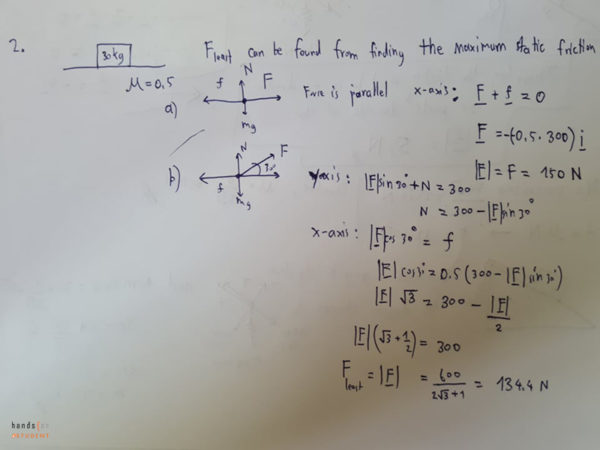 2. 30kg F least can be found from finding the maximum static friction
μ=0,5
a) f N F mg Force is parallel x-axis: F + f = 0
F = -(-0.5·300) i
|F| = F = 150 N
b) f N F mg y-axis: |F| sin 30° + N = 300
N = 300 - |F| sin 30°
x-axis: |F| cos 30° = f
|F| cos 30° = 0.5 (300 - |F| sin 30°)
|F| √3 = 300 - |F|/2
|F| (√3 + 1/2) = 300
F least = |F| = 600/(2√3+1) = 134.4 N
hands on
STUDENT